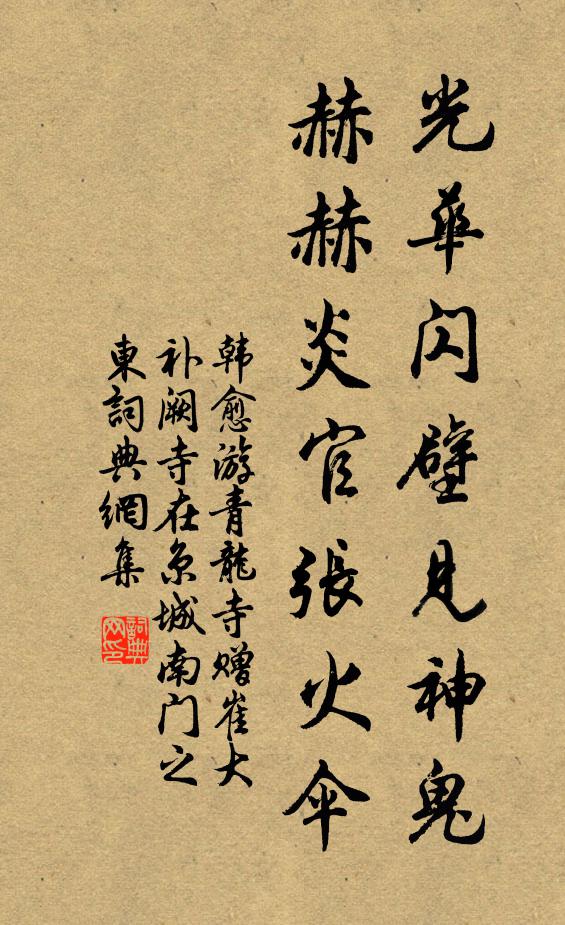 光華閃壁見神鬼
赫赫炎官張火伞
韩愈游青龍寺赠崔大
补阙寺在京城南门之
東詞典網集
詞典
网印